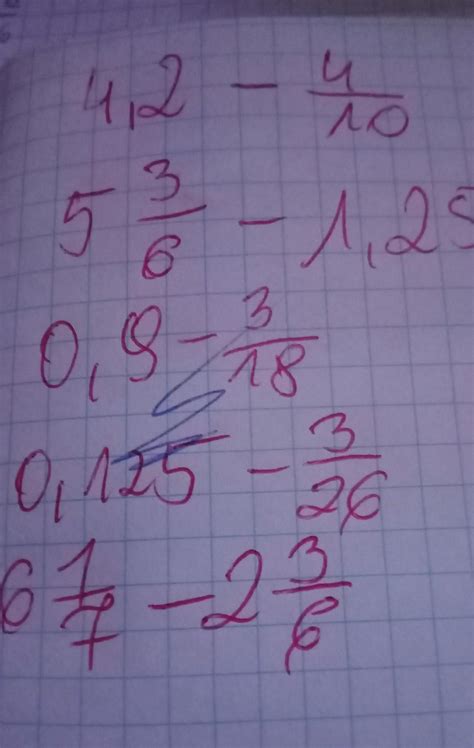 4,2 - 4/10
5 3/6 - 1,25
0,9 - 3/18
0,125 - 3/26
6 1/7 - 2 3/6